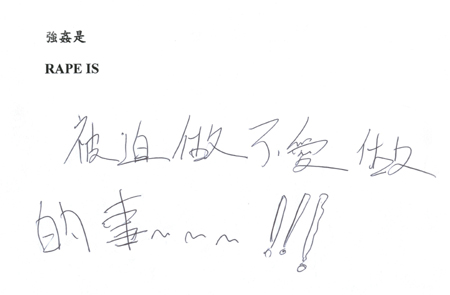 強姦是
RAPE IS
被迫做不愛做
的事~~~!!!